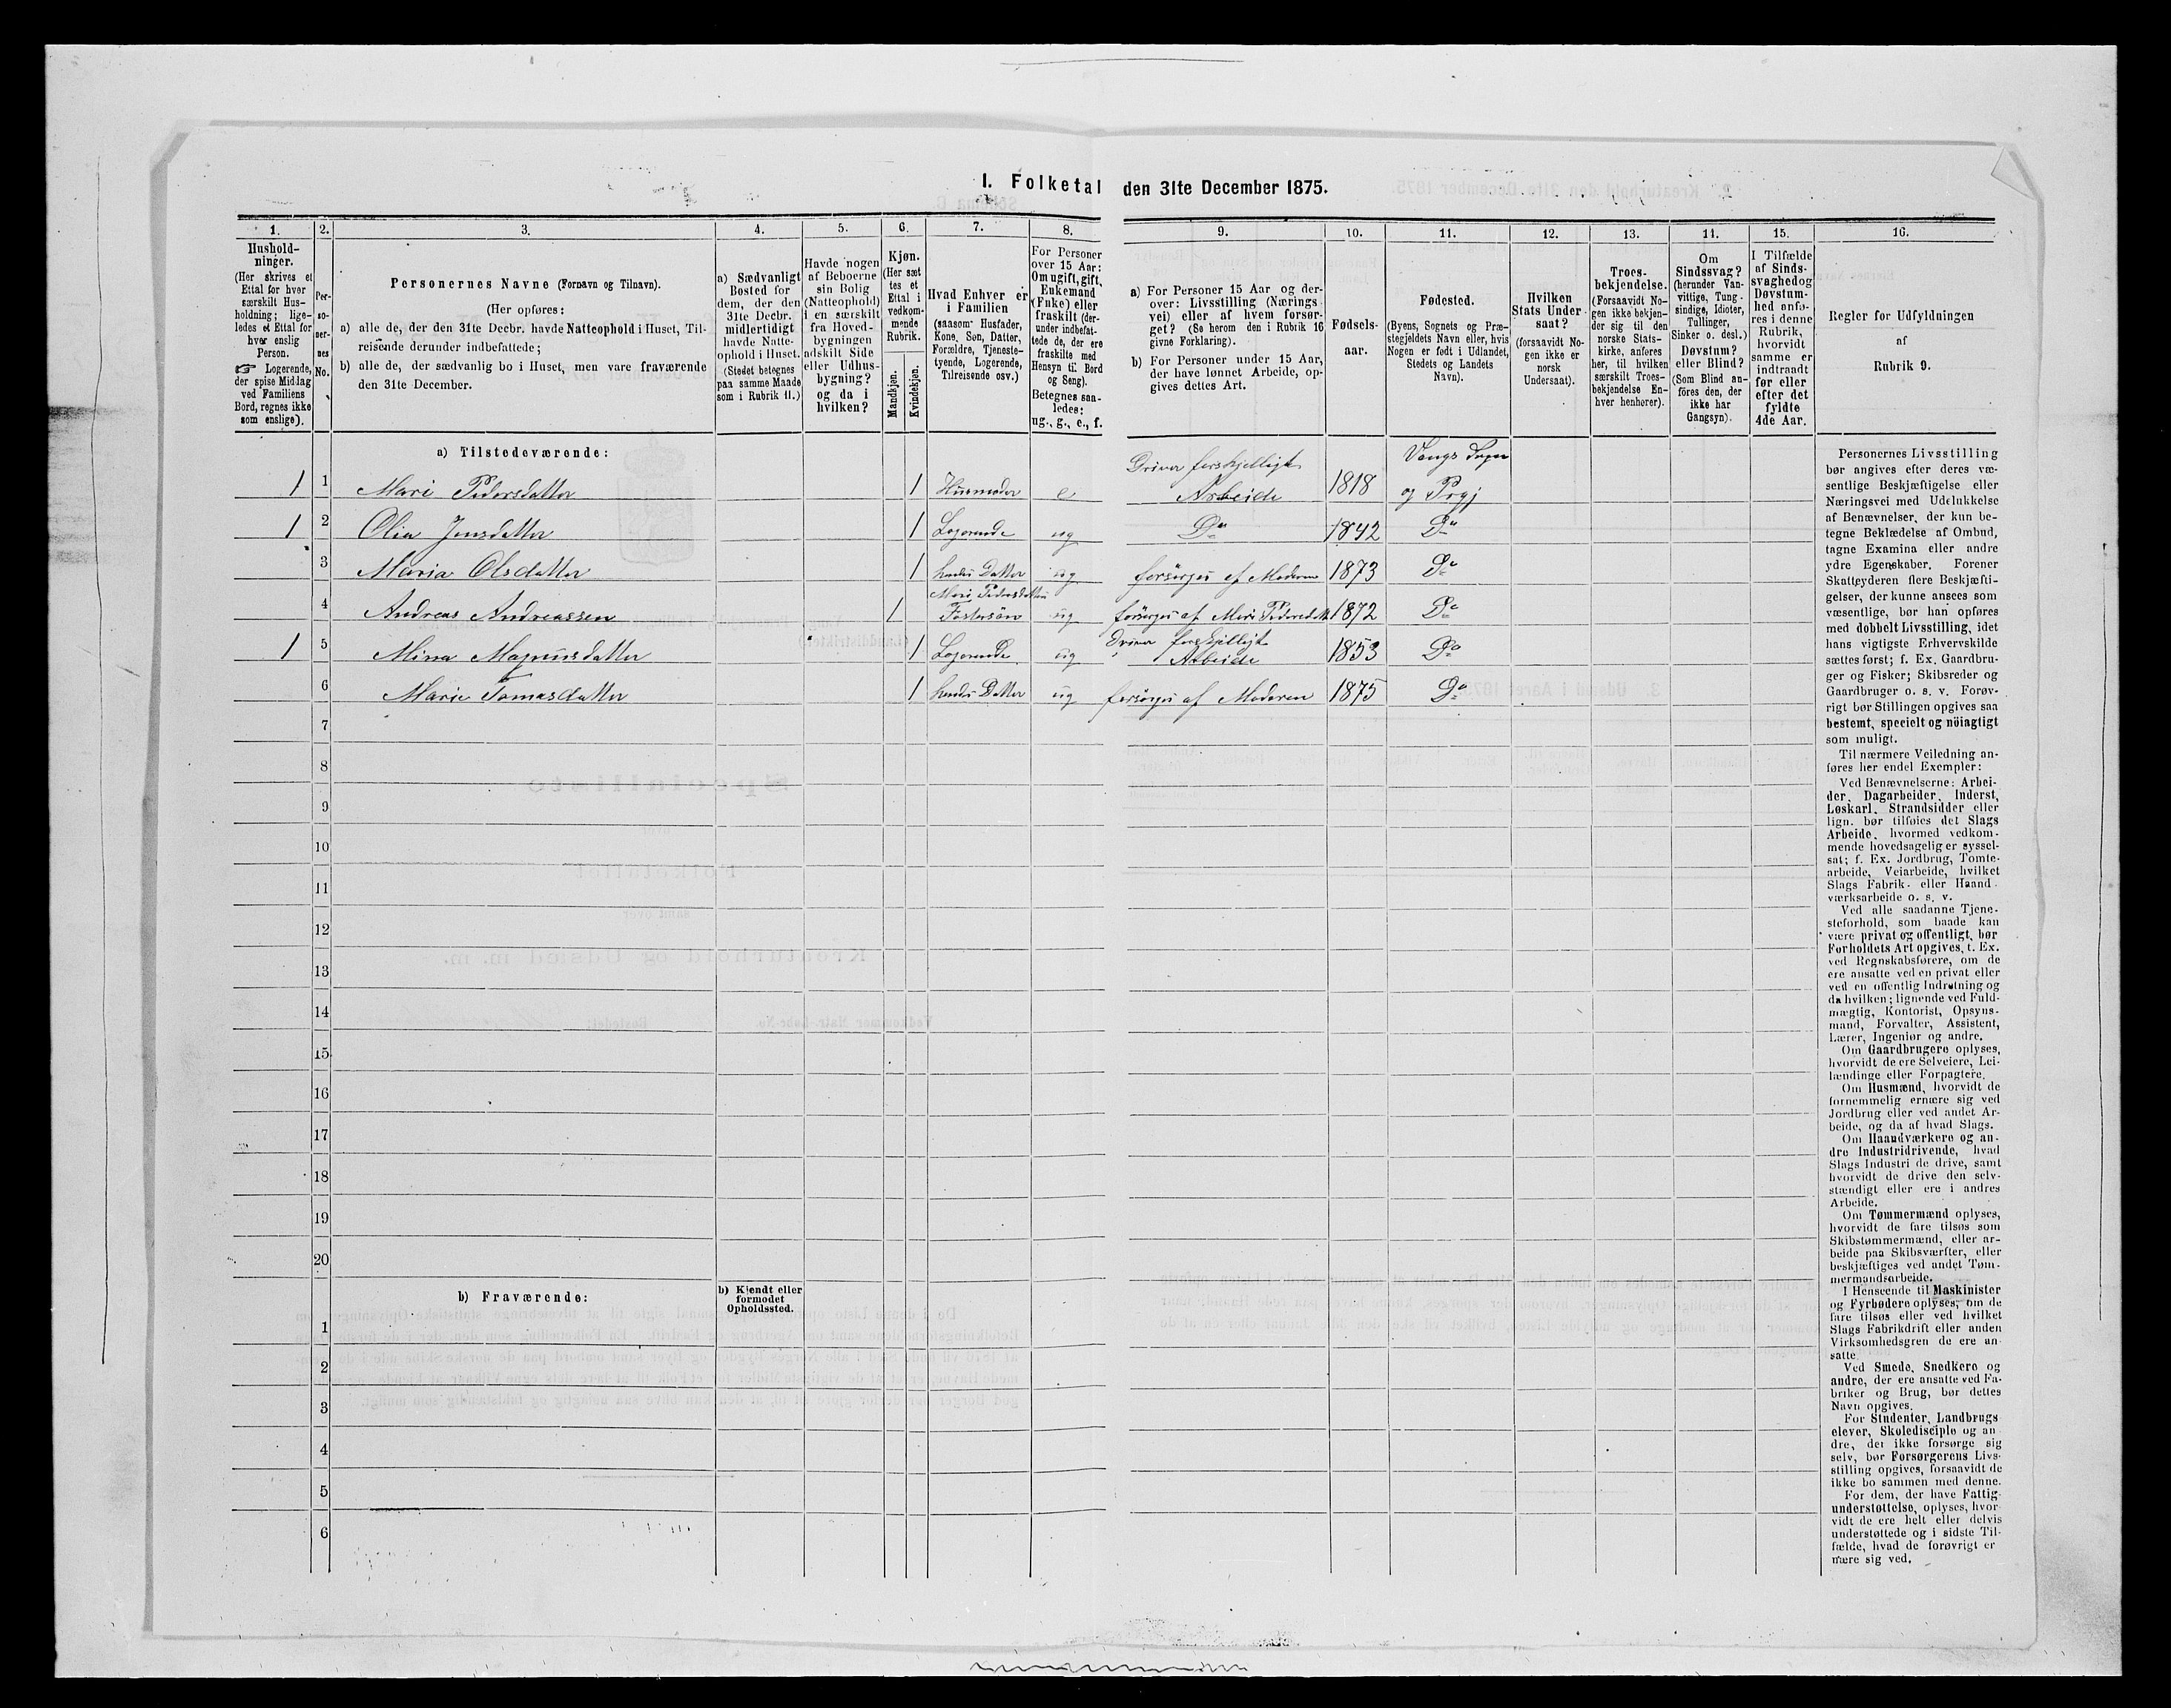 I. Folketal den 31te December 1875.
1.
Hushold-
ninger.
(Her skrives et
Ettal for hver
særskilt Hus-
holdning; lige-
ledes et Ettal for
hver enslig
Person.
☞ Logerende,
der spise Middag
ved Familiens
Bord, regnes ikke
som enslige).
2.
Per-
so-
ner-
nes
No.
3.
Personernes Navne (Fornavn og Tilnavn).
(Her opføres:
a) alle de, der den 31te Decbr. havde Natteophold i Huset, Til-
reisende derunder indbefattede;
b) alle de, der sædvanlig bo i Huset, men vare fraværende
den 31te December.
4.
a) Sædvanligt
Bosted for
dem, der den
31te Decbr.
midlertidigt
havde Natte-
ophold i Huset.
(Stedet betegnes
paa samme Maade
som i Rubrik 11.)
5.
Havde nogen
af Beboerne
sin Bolig
(Natteophold)
i en særskilt
fra Hoved-
bygningen
adskilt Side
eller Udhus-
bygning?
og da i
hvilken?
6.
Kjøn.
(Her sæt
tes et
Ettal i
vedkom-
mende
Rubrik.
Mandkjøn.
Kvindekjøn.
7.
Hvad Enhver er
i Familien
(saasom Husfader,
Kone, Søn, Datter,
Forældre, Tjeneste-
tyende, Logerende,
Tilreisende osv.)
8.
For Personer
over 15 Aar:
Om ugift, gift,
Enkemand
(Enke) eller
fraskilt (der-
under indbefat-
tede de, der ere
fraskilte med
Hensyn til Bord
og Seng).
Betegnes saa-
ledes:
ug., g., e., f.
9.
a) For Personer 15 Aar og der-
over: Livsstilling (Nærings
vei) eller af hvem forsør-
get? (Se herom den i Rubrik 16
givne Forklaring).
b) For Personer under 15 Aar,
der have lønnet Arbeide, op-
gives dettes Art.
10.
Fødsels-
aar.
11.
Fødested.
(Byens, Sognets og Præ-
stegjeldets Navn eller, hvis
Nogen er født i Udlandet,
Stedets og Landets
Navn).
12.
Hvilken
Stats Under
saat?
(forsaavidt No-
gen ikke er
norsk
Undersaat).
13.
Troes-
bekjendelse.
(Forsaavidt No-
gen ikke bekjen-
der sig til den
norske Stats-
kirke, anføres
her, til hvilken
særskilt Troes-
bekjendelse En-
hver henhører).
14.
Om
Sindssvag?
(herunder Van-
vittige, Tung-
sindige, Idioter,
Tullinger,
Sinker o. desl.)
Døvstum?
eller Blind?
(Som Blind an-
föres den, der
ikke har
Gangsyn).
15.
I Tilfælde
af Sinds-
svaghed og
Døvstum-
hed anfø-
res i denne
Rubrik,
hvorvidt
samme er
indtraadt
før eller
efter det
fyldte
4de Aar.
16.
Regler for Udfyldningen
af
Rubrik 9.
a) Tilstedeværende:
1 1 Mari Pedersdatter 1 Husmoder e Driver forskjelligt Arbeide 1818 Vangs Sogn og Prgj
1 2 Olia Jensdatter 1 Logerende ug Do 1842 Do
3 Maria Olsdatter 1 hendes Datter ug forsörges af Moderen 1873 Do
4 Andreas Andreassen 1 Mari Pedersdatters Fostersön ug forsörges af Mari Pedersdatt 1872 Do
1 5 Mina Magnusdatter 1 Logerende ug Driver forskjelligt Arbeide 1853 Do
6 Marie Tomasdatter 1 hendes Datter ug forsörges af Moderen 1875 Do
7
8
9
10
11
12
13
14
15
16
17
18
19
20
b) Fraværende:
b) Kjendt eller
formodet
Opholdssted.
1
2
3
4
5
6
Personernes Livsstilling
bør angives efter deres væ-
sentlige Beskjæftigelse eller
Næringsvei med Udelukkelse
af Benævnelser, der kun be-
tegne Beklædelse af Ombud,
tagne Examina eller andre
ydre Egenskaber. Forener
Skatteyderen flere Beskjæfti-
gelser, der kunne ansees som
væsentlige, bør han opføres
med dobbelt Livsstilling, idet
hans vigtigste Erhvervskilde
sættes først; f. Ex. Gaardbru-
ger og Fisker; Skibsreder og
Gaardbruger o. s. v. Forøv-
rigt bør Stillingen opgives saa
bestemt, specielt og nöiagtigt
som muligt.
Til nærmere Veiledning an-
føres her endel Exempler:
Ved Benævnelserne: Arbei-
der, Dagarbeider, Inderst,
Løskarl, Strandsidder eller
lign. bør tilføies det Slags
Arbeide, hvormed vedkom-
mende hovedsagelig er syssel-
sat; f. Ex. Jordbrug, Tomte-
arbeide, Veiarbeide, hvilket
Slags Fabrik- eller Haand-
værksarbeide o. s. v.
Ved alle saadanne Tjene-
steforhold, som baade kan
være privat og offentligt, bør
Forholdets Art opgives, t. Ex.
ved Regnskabsførere, om de
ere ansatte ved en privat eller
ved en offentlig Indretning og
da hvilken; lignende ved Fuld-
mægtig, Kontorist, Opsyns-
mand, Forvalter, Assistent,
Lærer, Ingeniør og andre.
Om Gaardbrugere oplyses,
hvorvidt de ere Selveiere, Lei-
lændinge eller Forpagtere.
Om Husmænd, hvorvidt de
fornemmelig ernære sig ved
Jordbrug eller ved andet Ar-
beide, og da af hvad Slags.
Om Haandværkere og an-
dre Industridrivende, hvad
Slags Industri de drive, samt
hvorvidt de drive den selv-
stændigt eller ere i andres
Arbeide.
Om Tømmermænd oplyses,
hvorvidt de fare tilsøs som
Skibstømmermænd, eller ar-
beide paa Skibsværfter, eller
beskjæftiges ved andet Tøm-
mermandsarbeide.
I Henseende til Maskinister
og Fyrbødere oplyses, om de
fare tilsøs eller ved hvilket
Slags Fabrikdrift eller anden
Virksomhedsgren de ere an-
satte.
Ved Smede, Snedkere og
andre, der ere ansatte ved Fa-
briker og Brug, bør dettes
Navn opgives.
For Studenter, Landbrugs
elever, Skoledisciple og an
dre, der ikke forsørge sig
selv, bør Forsørgerens Livs-
stilling opgives, forsaavidt de
ikke bo sammen med denne.
For dem, der have Fattig
understøttelse, oplyses, hvor-
vidt de ere helt eller delvis
understøttede og i sidste Til-
fælde, hvad de forøvrigt er
nære sig ved.